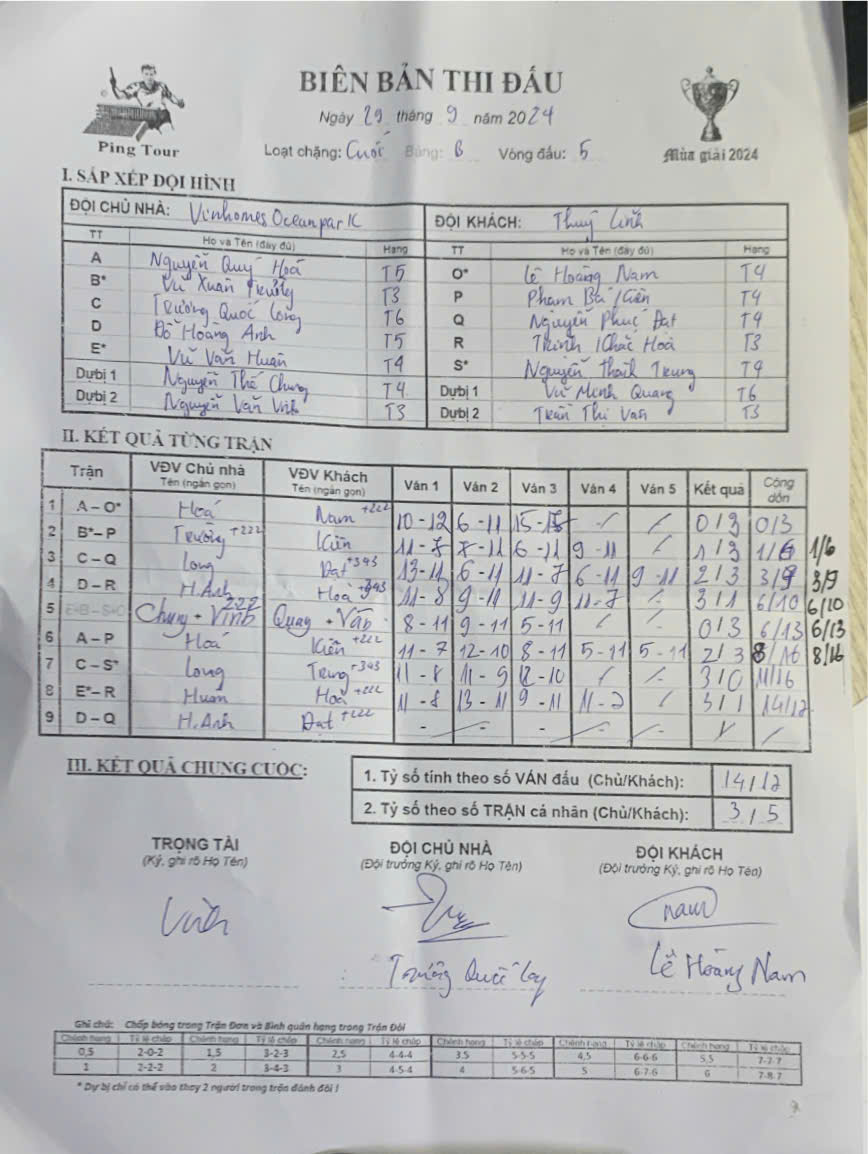 BIÊN BẢN THI ĐẤU
Ngày 29 tháng 9 năm 2024
Ping Tour
Loạt chặng: Cuối Bảng: B Vòng đấu: 5
Mùa giải 2024
I. SẮP XẾP ĐỘI HÌNH
ĐỘI CHỦ NHÀ: Vinhomes Ocean park ĐỘI KHÁCH: Thuỳ Linh
TT Họ và Tên (đầy đủ) Hạng TT Họ và Tên (đầy đủ) Hạng
A Nguyễn Quý Hoá T5 O* Lê Hoàng Nam T4
B* Vũ Xuân Trường T3 P Phạm Bá Kiên T4
C Trương Quốc Long T6 Q Nguyễn Phúc Đạt T4
D Đỗ Hoàng Anh T5 R Trịnh Khắc Hoà T3
E* Vũ Văn Huân T4 S* Nguyễn Thành Trung T4
Dự bị 1 Nguyễn Thế Chung T4 Dự bị 1 Vũ Minh Quang T6
Dự bị 2 Nguyễn Văn Vinh T3 Dự bị 2 Trần Thị Vân T3
II. KẾT QUẢ TỪNG TRẬN
Trận VĐV Chủ nhà Tên (ngắn gọn) VĐV Khách Tên (ngắn gọn) Ván 1 Ván 2 Ván 3 Ván 4 Ván 5 Kết quả Cộng dồn
1 A – O* Hoá Nam +222 10 - 12 6 - 11 15 - / / 0/3 0/3
2 B* – P Trường +222 Kiên 11 - 7 - 11 6 - 11 9 - 11 / 1/3 1/6 1/6
3 C – Q Long Đạt +343 13 - 11 6 - 11 11 - 7 6 - 11 9 - 11 2/3 3/9 3/9
4 D – R H.Anh Hoà +343 11 - 8 9 - 11 11 - 9 11 - 7 / 3/1 6/10 6/10
5 E+B – S+O Chung + Vinh 222 Quang + Vân 8 - 11 9 - 11 5 - 11 / / 0/3 6/13 6/13
6 A – P Hoá Kiên +222 11 - 7 12 - 10 8 - 11 5 - 11 5 - 11 2/3 8/16 8/16
7 C – S* Long Trung +343 11 - 8 11 - 9 12 - 10 / / 3/0 11/16
8 E* – R Huân Hoà +222 11 - 8 13 - 11 9 - 11 11 - 2 / 3/1 14/17
9 D – Q H.Anh Đạt +222 - - - / / / /
III. KẾT QUẢ CHUNG CUỘC:
1. Tỷ số tính theo số VÁN đấu (Chủ/Khách): 14/17
2. Tỷ số theo số TRẬN cá nhân (Chủ/Khách): 3/5
TRỌNG TÀI ĐỘI CHỦ NHÀ ĐỘI KHÁCH
(Ký, ghi rõ Họ Tên) (Đội trưởng Ký, ghi rõ Họ Tên) (Đội trưởng Ký, ghi rõ Họ Tên)
nam
Trương Quốc Long Lê Hoàng Nam
Ghi chú: Chấp bóng trong Trận Đơn và Bình quân hạng trong Trận Đôi
Chênh hạng Tỷ lệ chấp Chênh hạng Tỷ lệ chấp Chênh hạng Tỷ lệ chấp Chênh hạng Tỷ lệ chấp Chênh hạng Tỷ lệ chấp Chênh hạng Tỷ lệ chấp
0,5 2-0-2 1,5 3-2-3 2,5 4-4-4 3,5 5-5-5 4,5 6-6-6 5,5 7-7-7
1 2-2-2 2 3-4-3 3 4-5-4 4 5-6-5 5 6-7-6 6 7-8-7
* Dự bị chỉ có thể vào thay 2 người trong trận đánh đôi !